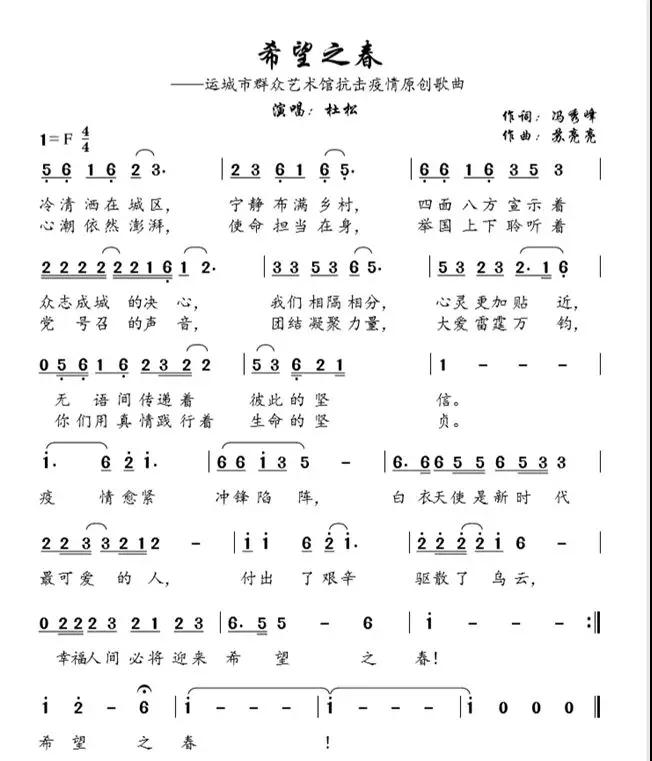 希望之春
——运城市群众艺术馆抗击疫情原创歌曲
演唱：杜松
作词：冯秀峰
作曲：苏亮亮
1=F 4/4
5 6 1 6 2 3· | 2 3 6 1 6 5· | 6 6 1 6 3 5 3 |
冷清洒在城区， 宁静布满乡村， 四面八方宣示着
心潮依然澎湃， 使命担当在身， 举国上下聆听着
2 2 2 2 2 2 1 6 1 2· | 3 3 5 3 3 6 5· | 5 3 2 3 2· 1 6 |
众志成城的决心， 我们相隔相分， 心灵更加贴近，
党号召的声音， 团结凝聚力量， 大爱雷霆万钧，
0 5 6 1 6 2 3 2 2 | 5 3 6 2 1 | 1 - - - |
无语间传递着 彼此的坚 信。
你们用真情践行着 生命的坚 贞。
1· 6 2 1· | 6 6 1 3 5 - | 6· 6 6 5 5 6 5 3 3 |
疫情愈紧 冲锋陷阵， 白衣天使是新时代
2 2 3 3 2 1 2 - | 1 1 6 2 1· | 2 2 2 2 1 6 - |
最可爱的人， 付出了艰辛 驱散了乌云，
0 2 2 2 3 2 1 2 3 | 6· 5 5 - 6 | 1 - - - :||
幸福人间必将迎来 希望 之 春！
1 2 - 6 | 1 - - - | 1 - - - | 1 0 0 0 ||
希望 之 春 ！